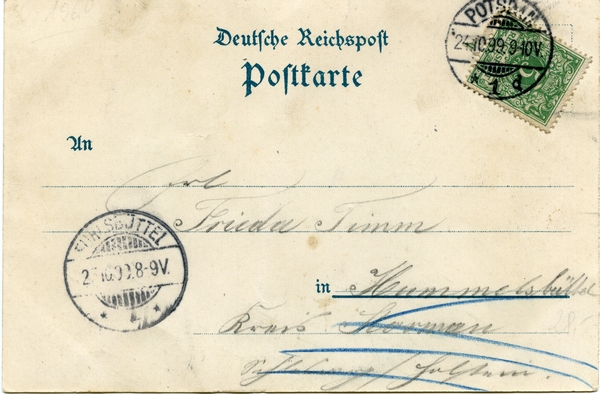 Deutsche Reichspost
Postkarte
POTSDAM
24.10.99.9-10V.
* 1 d
An
Frl
Frieda Timm
FUHLSBÜTTEL
10.99.8-9V.
in Hummelsbüttel
Kreis Stormarn
Schleswig/Holstein.